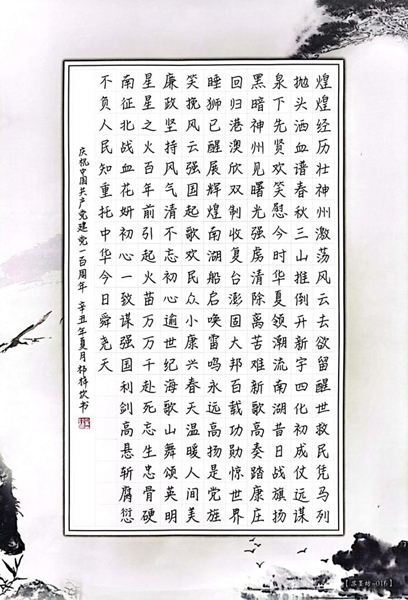 煌煌经历壮神州激荡风云去欲留醒世救民凭马列
抛头洒血谱春秋三山推倒开新宇四化初成仗远谋
泉下先贤欢笑慰今时华夏领潮流南湖昔日战旗扬
黑暗神州见曙光强虏清除离苦难新歌高奏踏康庄
回归港澳欣双制收复台澎固大邦百载功勋惊世界
睡狮已醒展辉煌南湖船启唤雷鸣永远高扬是党旌
笑挽风云强国起歌欢民众小康兴春天温暖人间美
廉政坚持风气清不忘初心逾世纪海歌山舞颂英明
星星之火百年前引起火苗万万千赴死忘生忠骨硬
南征北战血花妍初心一致谋强国利剑高悬斩腐愆
不负人民知重托中华今日舜尧天
庆祝中国共产党建党一百周年 辛丑年夏月 书
-016